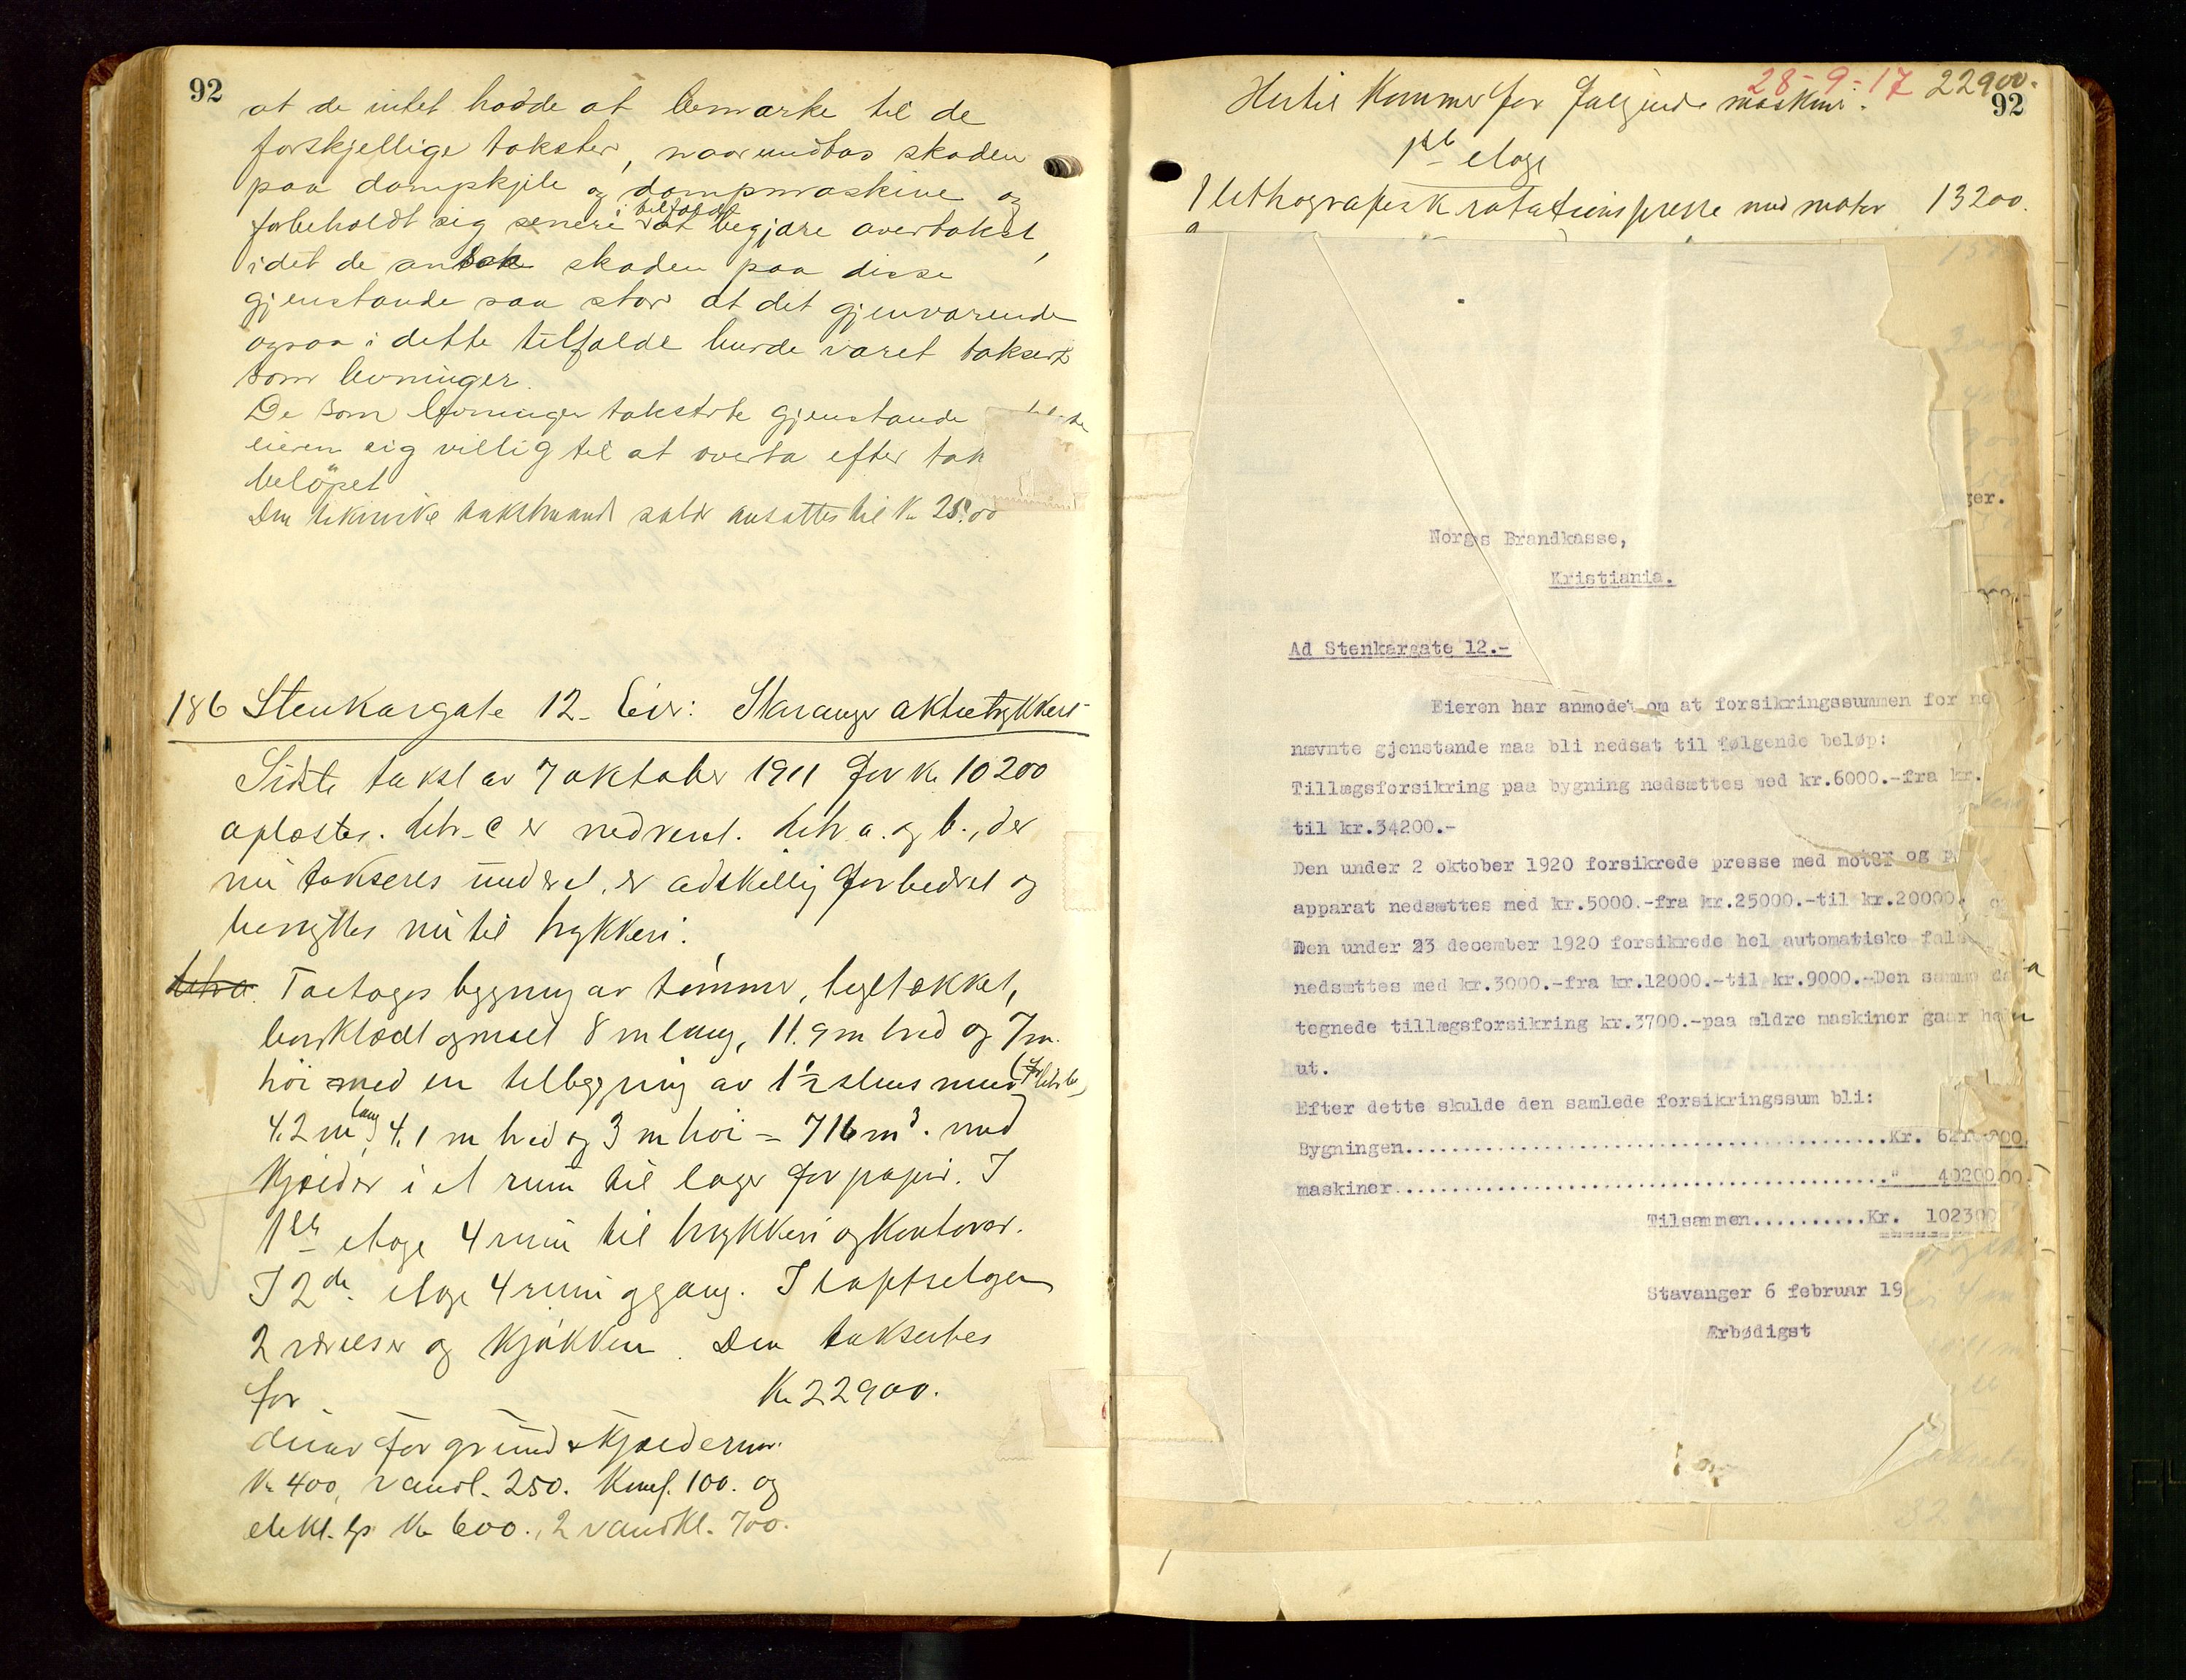 92
at de intet hadde at bemærke til de
forskjellige takster, naar undtas skaden
paa dampkjele og dampmaskine og
forbeholdt sig senere i tilfælde at begjære overtakst,
idet de antok skaden paa disse
gjenstande saa stor at det gjenværende
ogsaa i dette tilfælde burde været taksert
som levninger.
De som levninger takserte gjenstande
eieren sig villig til at overta efter tak
beløpet
Den tekniske takstmands salær ansattes til Kr. 25.00
186 Stenkargate 12. Eier: Stavanger aktietrykkeri
Sidste takst av 7 oktober 1911 for Kr. 10200
opløstes. Litr. C er nedrevet. Litr a. og b., der
nu takseres under et, er adskillig forbedret og
benyttes nu til trykkeri.
Litr a. Toetages bygning av tømmer, tegltækket,
bordklædt og malt 8 m lang, 11.9 m bred og 7 m.
høi med en tilbygning av 1½ stens mur (før litr b.)
4.2 m lang, 4.1 m bred og 3 m høi = 716 m³. med
Kjælder i et rum til lager for papir. I
1ste etage 4 rum til trykkeri og Kontorer.
I 2den etage 4 rum og gang. I loftsetagen
2 værelser og Kjøkken. Den takseres
for Kr. 22900.
derav for grund & Kjælderm.
Kr 400, vandl. 250. Komf. 100. og
elekt. lys Kr 600., 2 vandkl. 700.
28-9-17 22900.
Hertil Kommer for følgende maskiner: 92
1ste etage
1 lithografisk rotationspresse med motor 13200.
ger.
Norges Brandkasse,
Kristiania.
Ad Stenkargate 12.-
Eieren har anmodet om at forsikringssummen for ne
nævnte gjenstande maa bli nedsat til følgende beløp:
Tillægsforsikring paa bygning nedsættes med kr.6000.-fra kr.
til kr.34200.-
Den under 2 oktober 1920 forsikrede presse med motor og p
apparat nedsættes med kr.5000.-fra kr.25000.-til kr.20000.
Den under 23 december 1920 forsikrede hel automatiske fals
nedsættes med kr.3000.-fra kr.12000.-til kr.9000.-Den samme da
tegnede tillægsforsikring kr.3700.-paa ældre maskiner gaar
ut.
Efter dette skulde den samlede forsikringssum bli:
Bygningen................................................Kr.
maskiner.................................................." 40200.00
Tilsammen..........Kr. 102300
Stavanger 6 februar 19
Ærbødigst